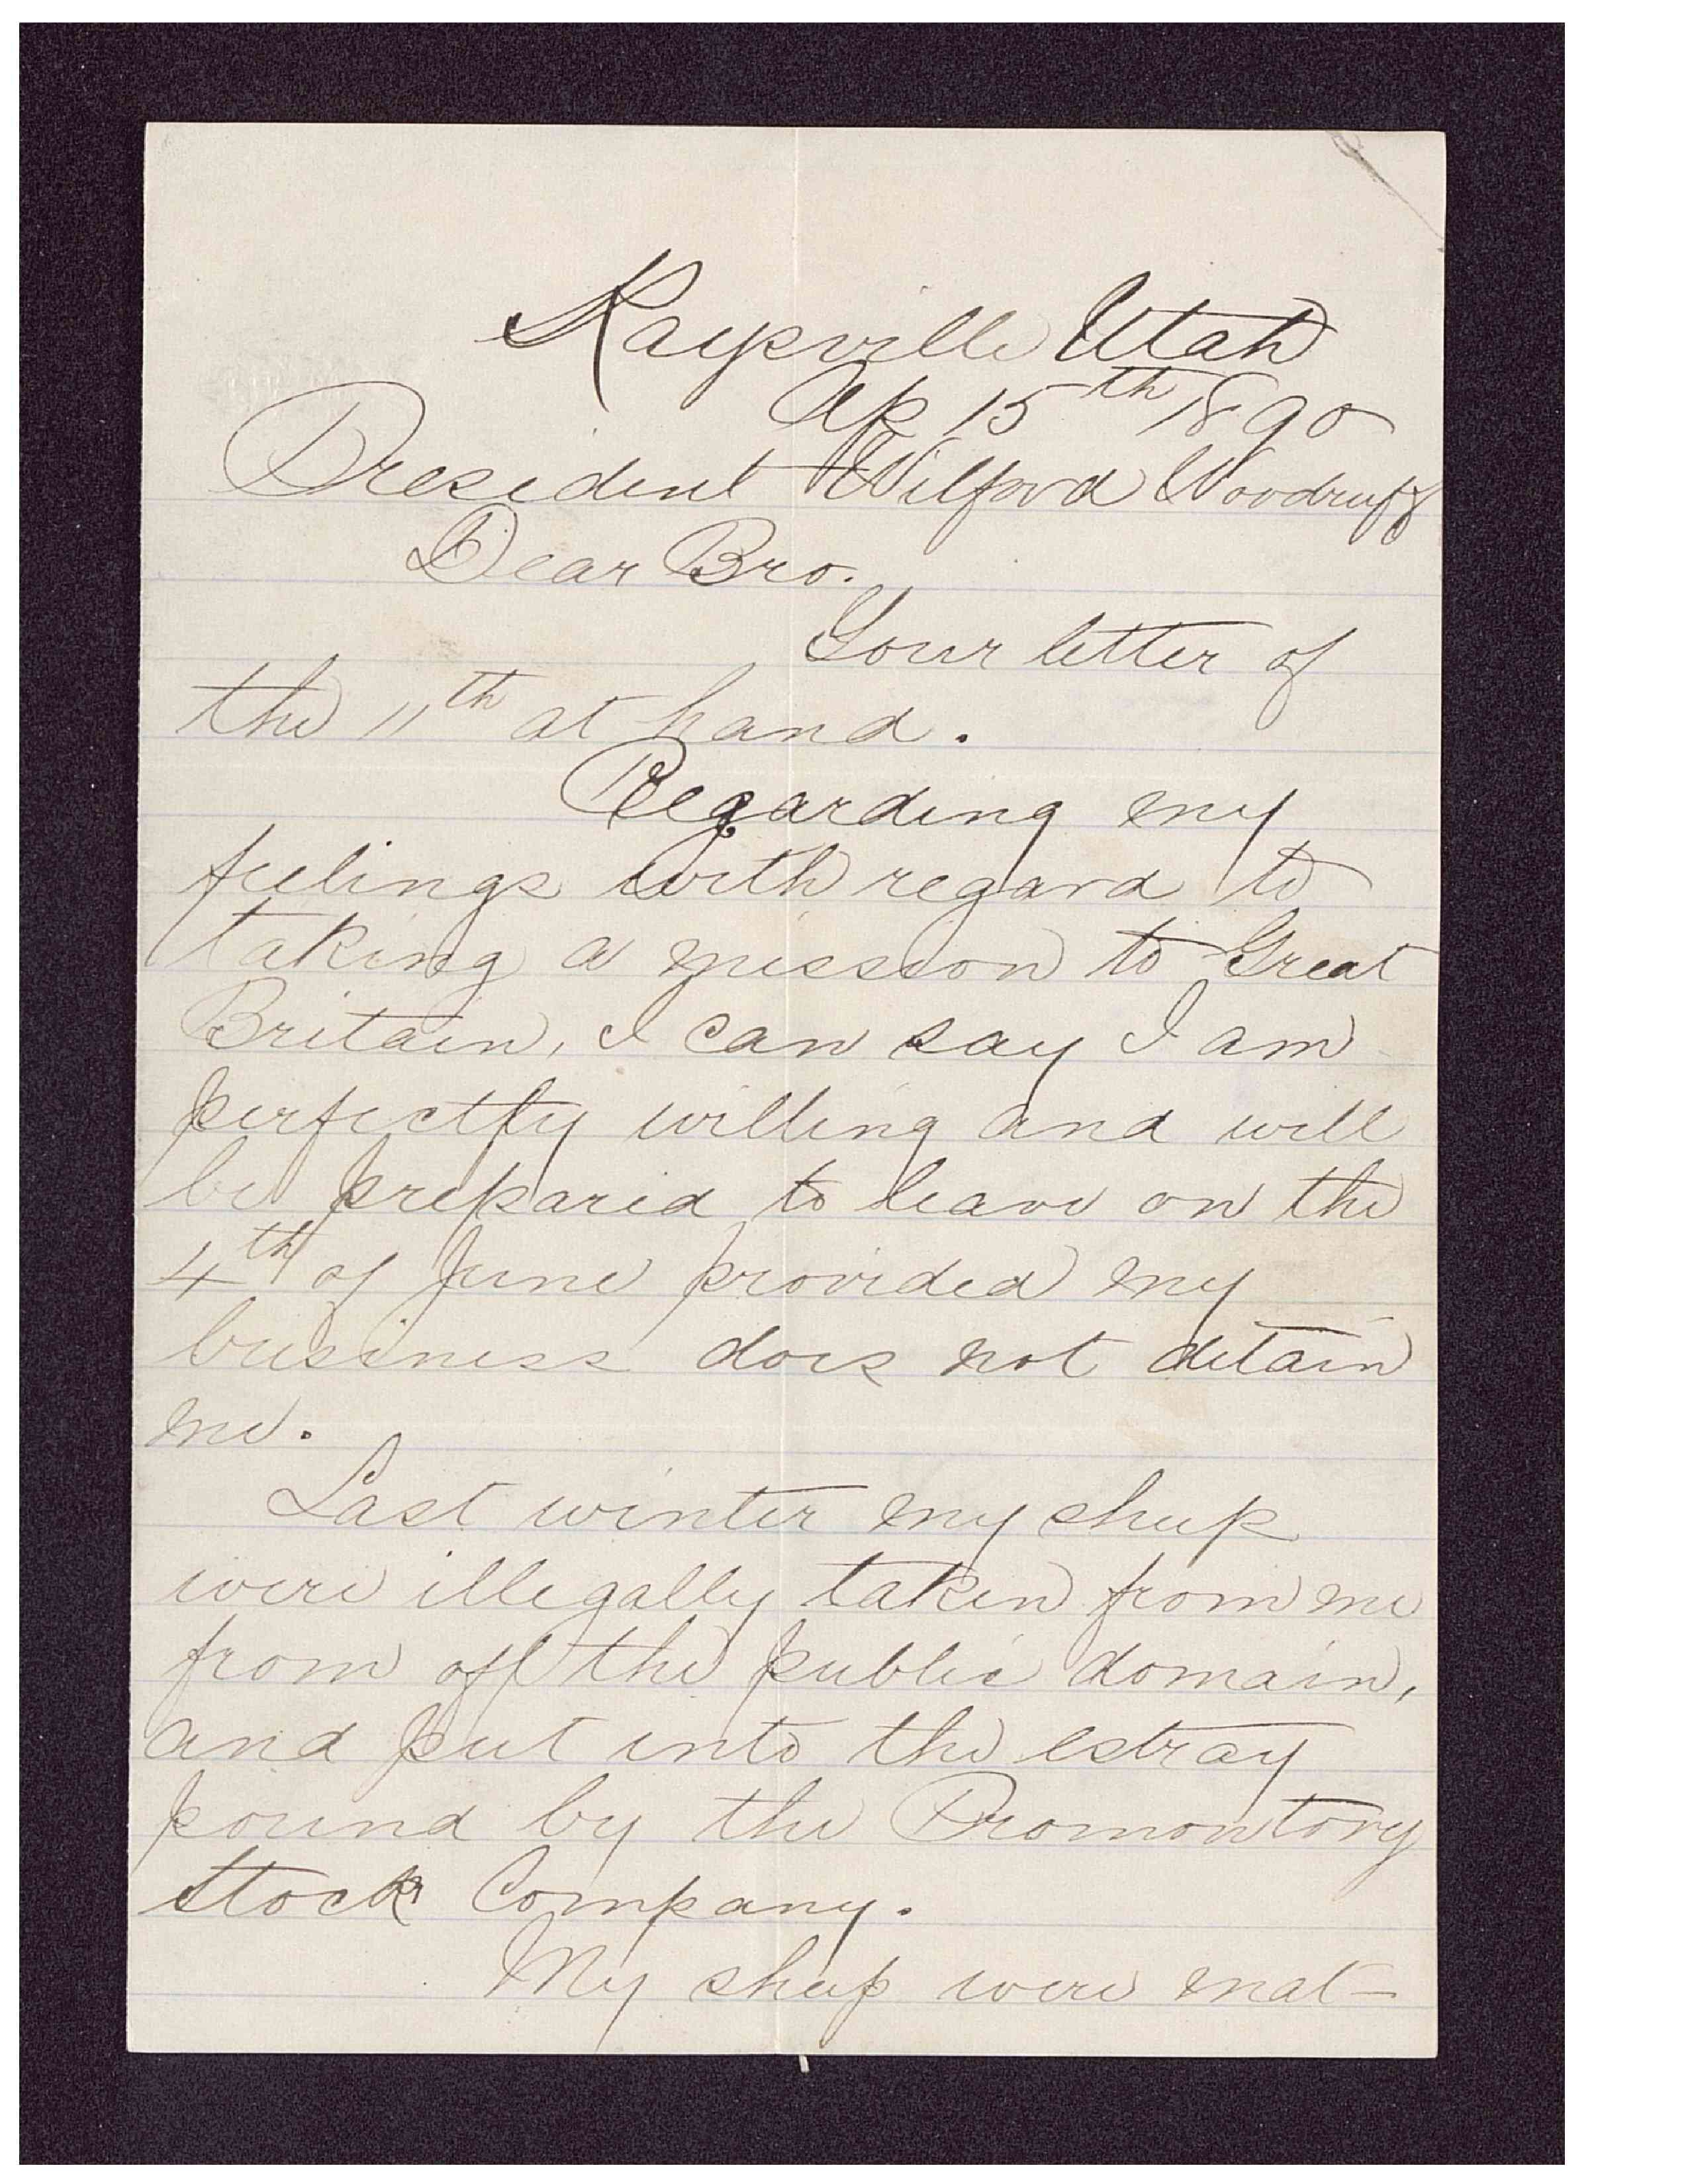 Kaysville Utah
Ap 15th 1890
President Wilford Woodruff
Dear Bro.
Your letter of
the 11th at hand.
Regarding my
feelings with regard to
taking a mission to Great
Britain, I can say I am
perfectly willing and will
be prepared to leave on the
4th of June provided my
business does not detain
me.
Last winter my sheep
were illegally taken from me
from off the public domain,
and put into the estray
pound by the Promontory
Stock Company.
My sheep were mat-